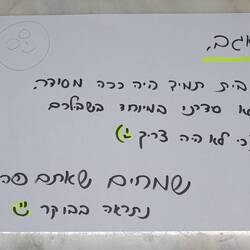 אגב,
בית תמיד היה ככה מסודר.
לא סדרתי במיוחד בשבילכם
כי לא היה צריך
שמחים שאתם פה
נתראה בבוקר